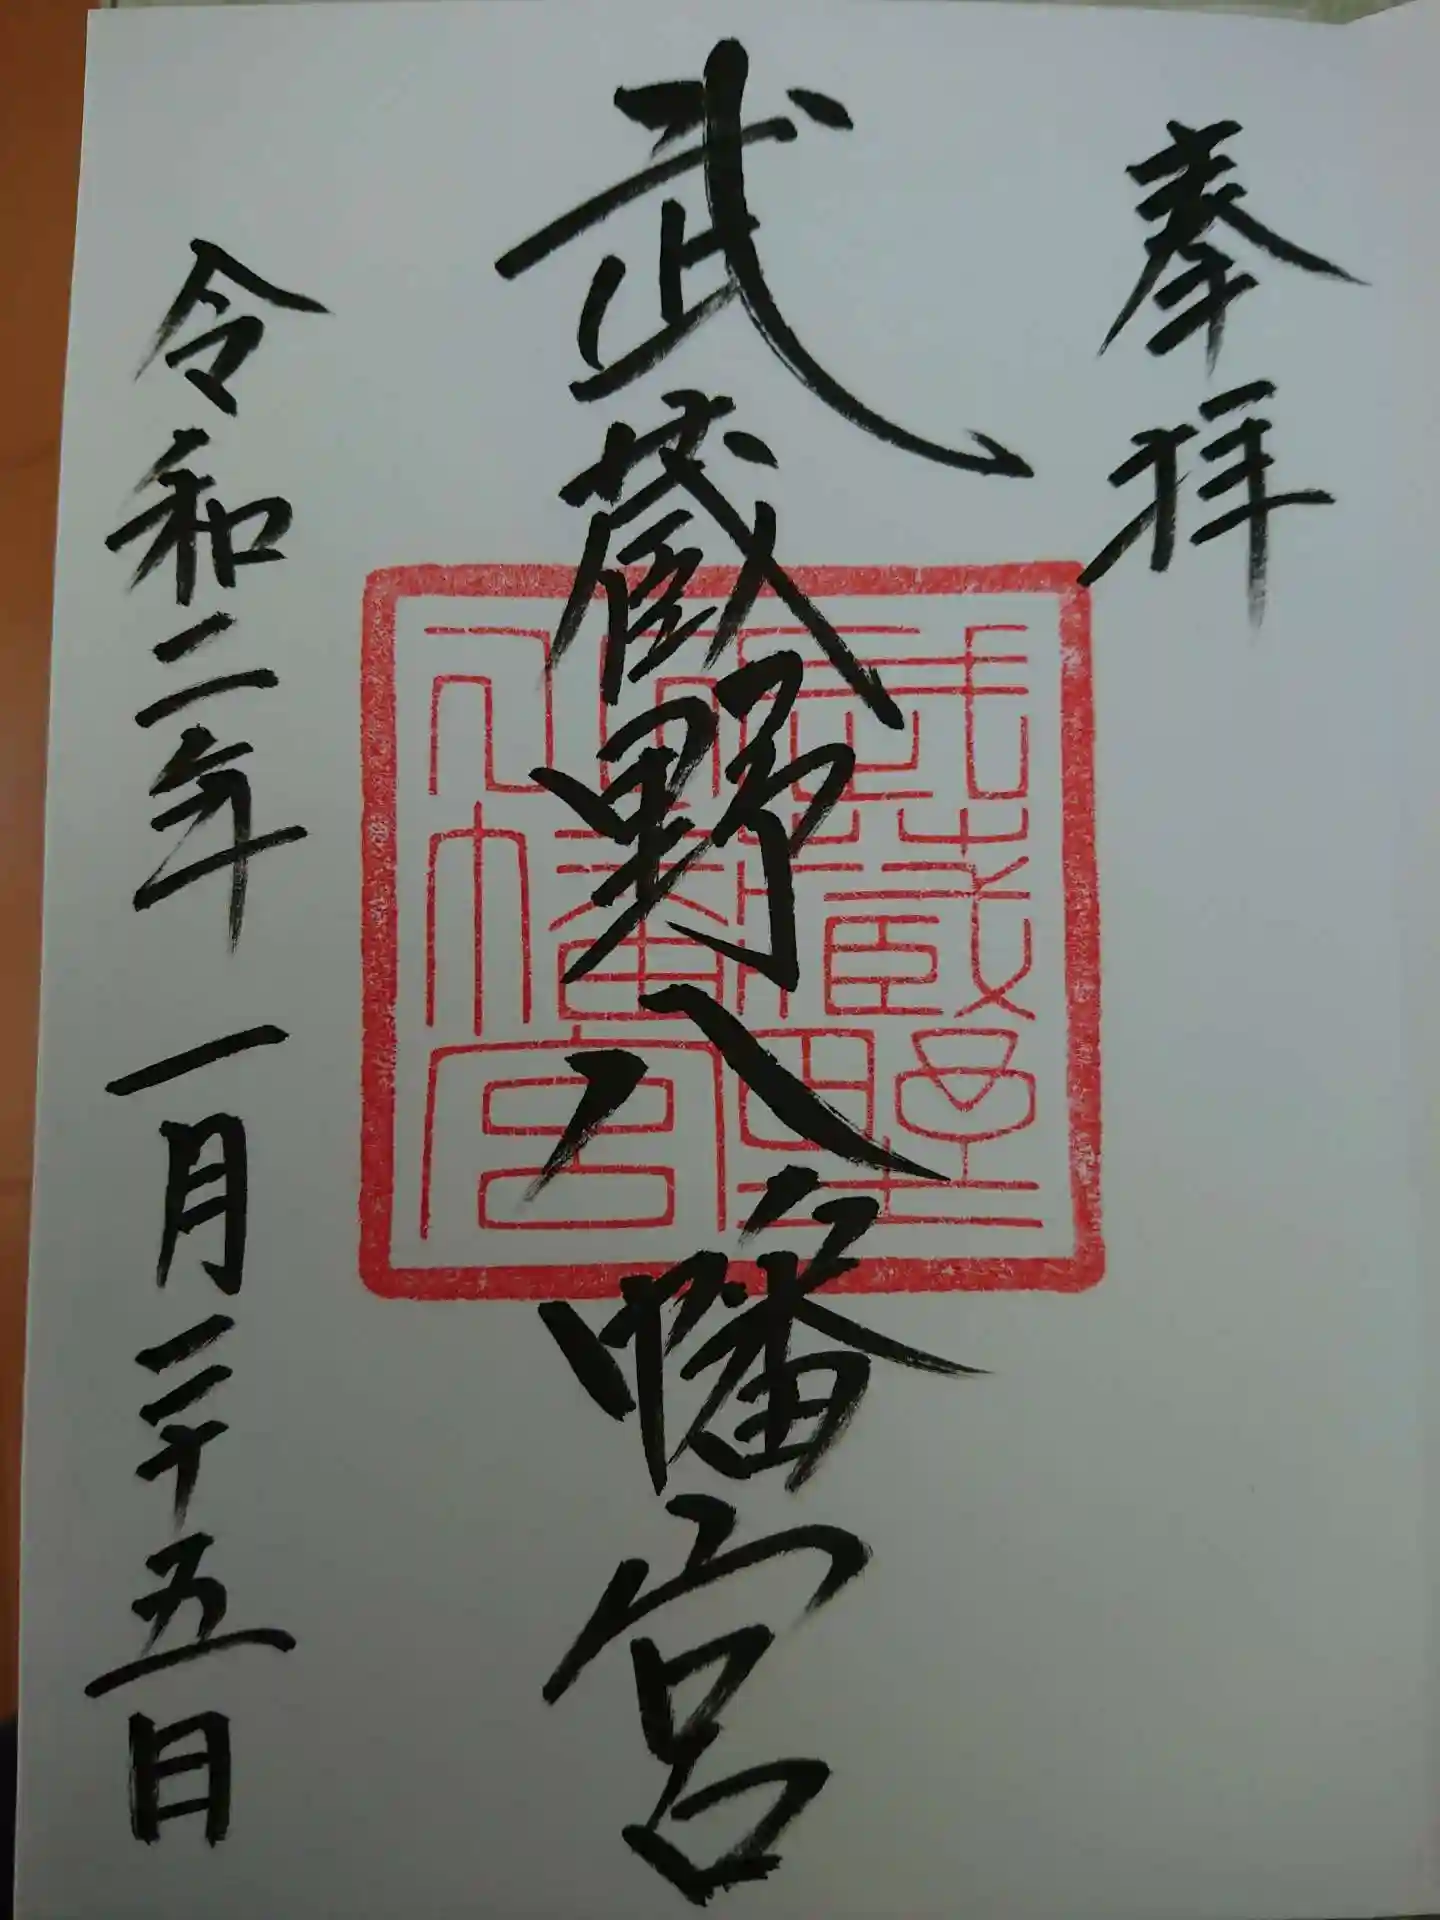 奉拝
武蔵野八幡宮
武蔵野
八幡宮
令和二年 一月二十五日